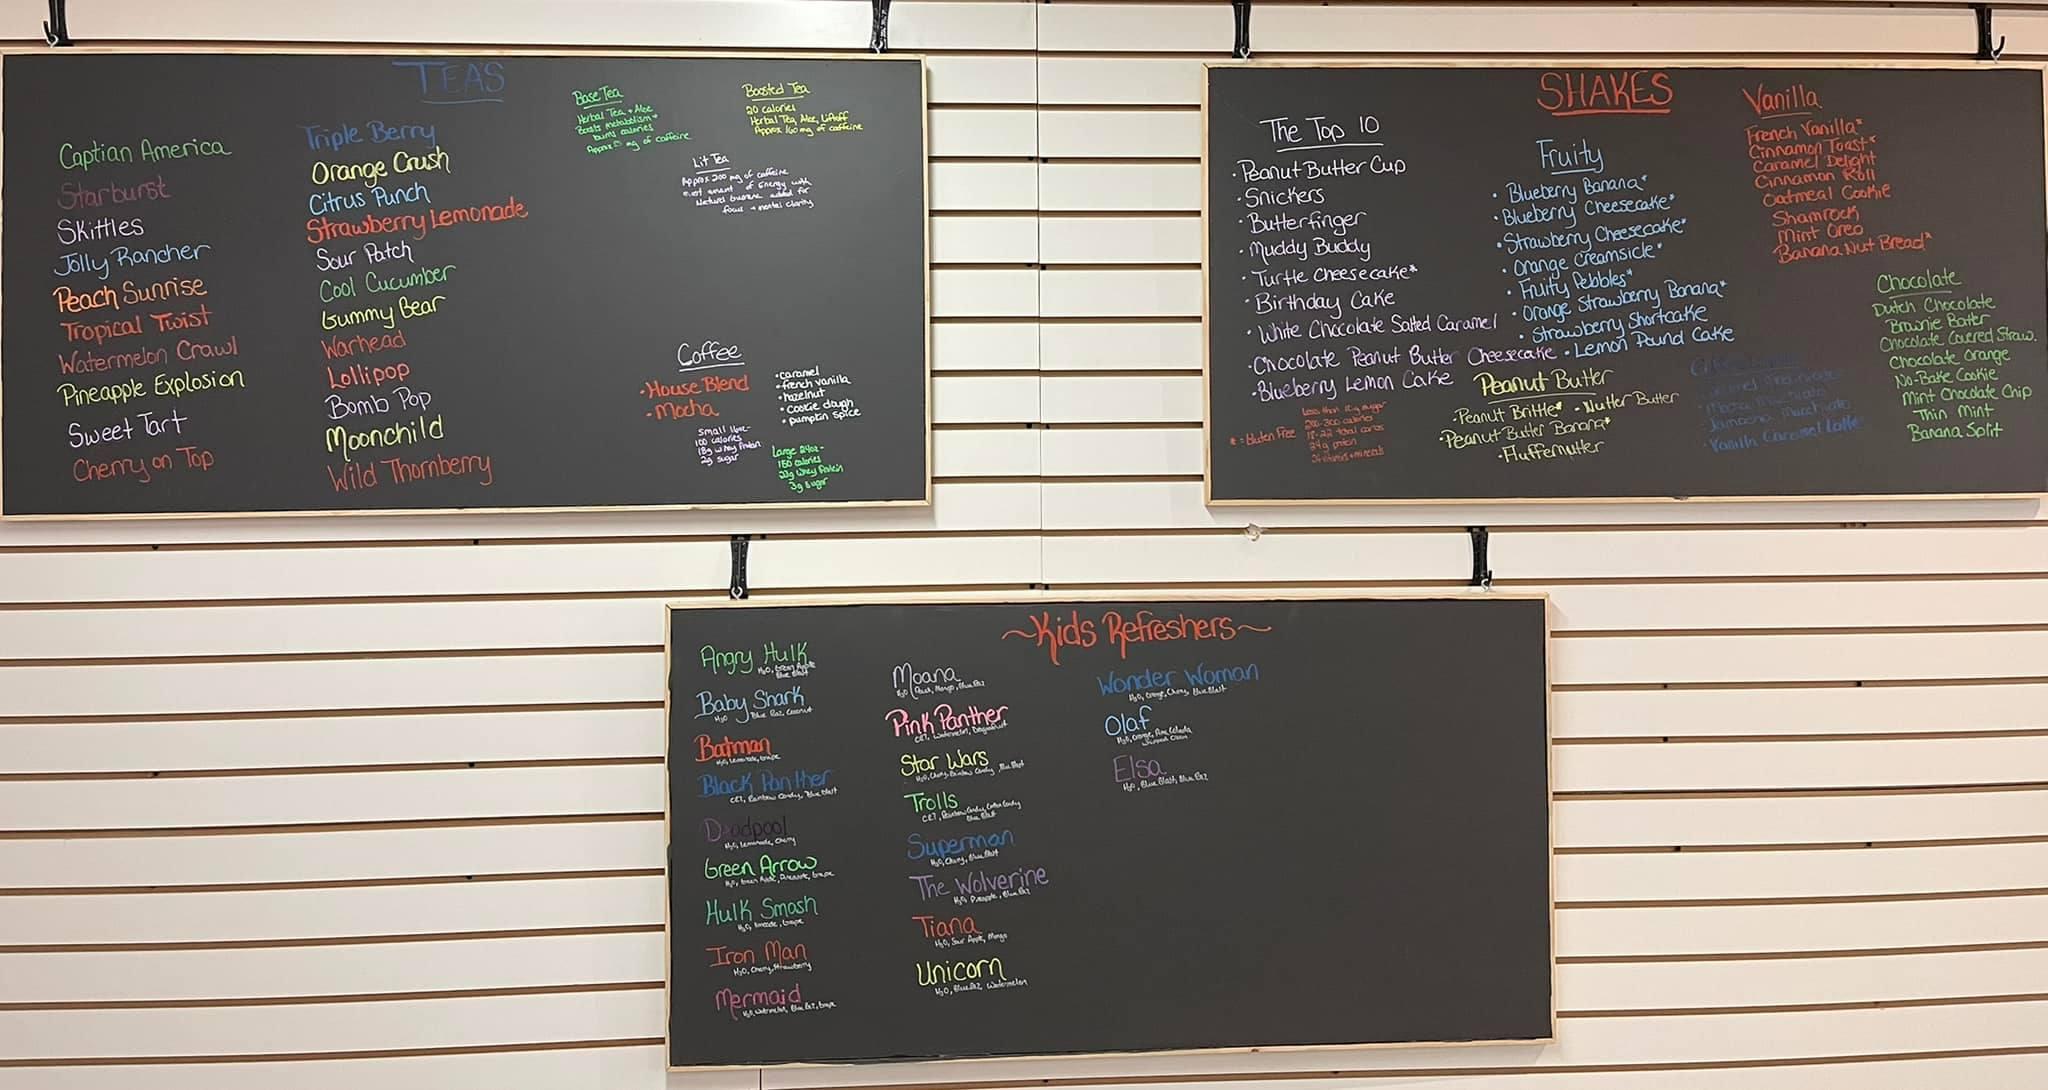 TEAS
Captian America
Starburst
Skittles
Jolly Rancher
Peach Sunrise
Tropical Twist
Watermelon Crawl
Pineapple Explosion
Sweet Tart
Cherry on Top
Triple Berry
Orange Crush
Citrus Punch
Strawberry Lemonade
Sour Patch
Cool Cucumber
Gummy Bear
Warhead
Lollipop
Bomb Pop
Moonchild
Wild Thornberry
Base Tea
Herbal Tea + Aloe
Boosts metabolism +
burns calories
Approx mg of caffeine
Boosted Tea
20 calories
Herbal Tea, Aloe, Liftoff
Approx 160 mg of caffeine
Lit Tea
Approx 200 mg of caffeine
amount of Energy with
Natural added for
focus + mental clarity
Coffee
• House Blend
• Mocha
• caramel
• french vanilla
• hazelnut
• cookie dough
• pumpkin spice
Small 16oz-
100 calories
18g whey protein
2g sugar
Large 24oz-
150 calories
22g whey protein
3g sugar
SHAKES
The Top 10
• Peanut Butter Cup
• Snickers
• Butterfinger
• Muddy Buddy
• Turtle Cheesecake*
• Birthday Cake
• White Chocolate Salted Caramel
• Chocolate Peanut Butter Cheesecake
• Blueberry Lemon Cake
* = Gluten Free
Less than sugar
200-300 calories
18-22 total carbs
24g protein
vitamins + minerals
Fruity
• Blueberry Banana*
• Blueberry Cheesecake*
• Strawberry Cheesecake*
• Orange Creamsicle*
• Fruity Pebbles*
• Orange Strawberry Banana*
• Strawberry Shortcake
• Lemon Pound Cake
Peanut Butter
• Peanut Brittle* • Nutter Butter
• Peanut Butter Banana*
• Fluffernutter
Vanilla
French Vanilla*
Cinnamon Toast*
Caramel Delight
Cinnamon Roll
Oatmeal Cookie
Shamrock
Mint Oreo
Banana Nut Bread*
• Vanilla Caramel Latte
Chocolate
Dutch Chocolate
Brownie Batter
Chocolate Covered Straw.
Chocolate Orange
No-Bake Cookie
Mint Chocolate Chip
Thin Mint
Banana Split
~Kids Refreshers~
Angry Hulk
H2O, Green Apple
Blue Blast
Baby Shark
H2O Blue Raz, Coconut
Batman
H2O, Lemonade, Grape
Black Panther
CR7, Rainbow Candy, Blue Blast
Deadpool
H2O, Lemonade, Cherry
Green Arrow
H2O, Green Apple, Pineapple, Grape
Hulk Smash
H2O, Limeade, Grape
Iron Man
H2O, Cherry, Strawberry
Mermaid
H2O, Watermelon, Blue Raz, Grape
Moana
H2O Peach, Mango, Blue Raz
Pink Panther
CR7, Watermelon, Dragonfruit
Star Wars
H2O, Cherry, Rainbow Candy, Blue Blast
Trolls
CR7, Rainbow Candy, Cotton Candy
Blue Blast
Superman
H2O, Cherry, Blue Blast
The Wolverine
H2O, Pineapple, Blue Raz
Tiana
H2O, Sour Apple, Mango
Unicorn
H2O, Blue Raz Watermelon
Wonder Woman
H2O, Orange, Cherry, Blue Blast
Olaf
H2O, Orange, Pina Colada
Whipped Cream
Elsa
H2O, Blue Blast, Blue Raz